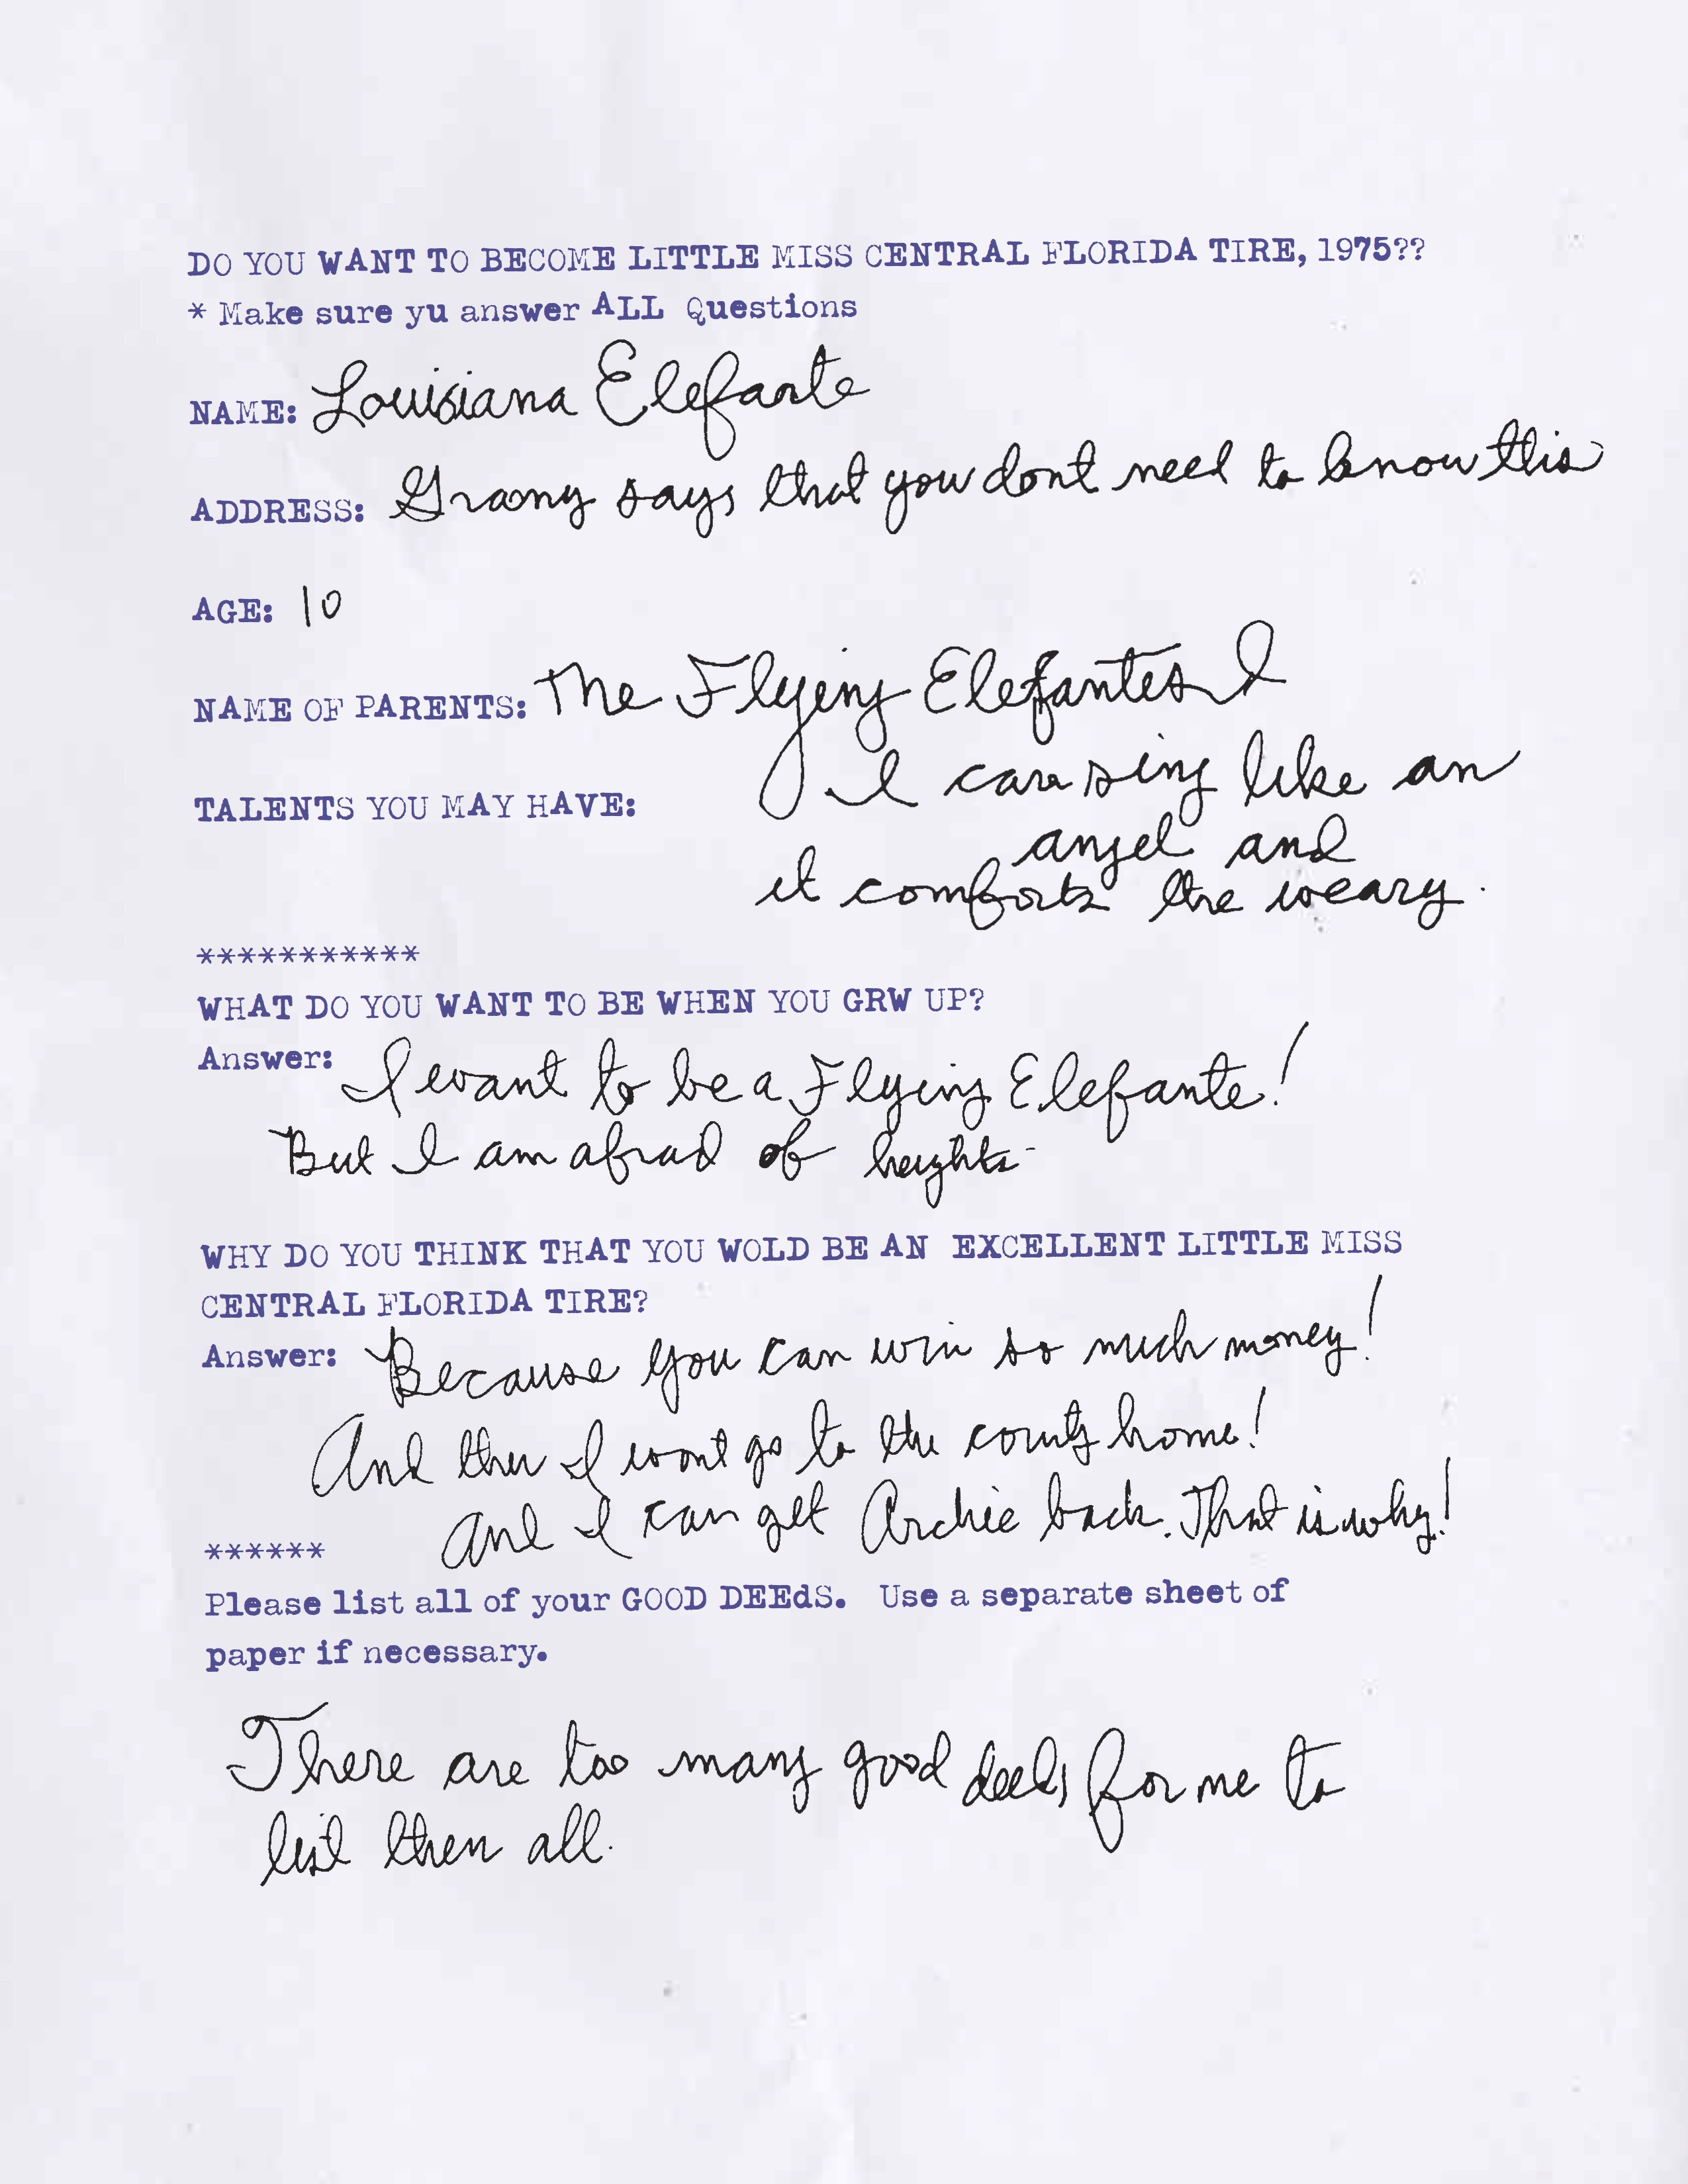 DO YOU WANT TO BECOME LITTLE MISS CENTRAL FLORIDA TIRE, 1975??
* Make sure yu answer ALL Questions
NAME: Louisiana Elefante
ADDRESS: Granny says that you dont need to know this
AGE: 10
NAME OF PARENTS: The Flying Elefantes
TALENTS YOU MAY HAVE: I can sing like an
angel and
it comforts the weary.
***********
WHAT DO YOU WANT TO BE WHEN YOU GRW UP?
Answer: I want to be a Flying Elefante!
But I am afraid of heights
WHY DO YOU THINK THAT YOU WOLD BE AN EXCELLENT LITTLE MISS
CENTRAL FLORIDA TIRE?
Answer: Because you can win so much money!
And then I wont go to the county home!
And I can get Archie back. That is why!
******
Please list all of your GOOD DEEdS. Use a separate sheet of
paper if necessary.
There are too many good deeds for me to
list them all.